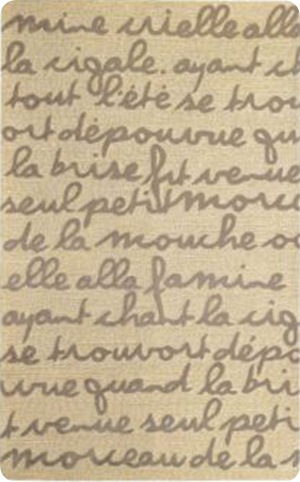 mine crielle alla
la cigale. ayant ch
tout l'été se trou
ort dépouvue qu
la brise fut venue
seul petit morce
de la mouche oo
elle alla famine
ayant chant la cig
se trouvort dépo
uvue quand la bri
t venue seul peti
morceau de la s